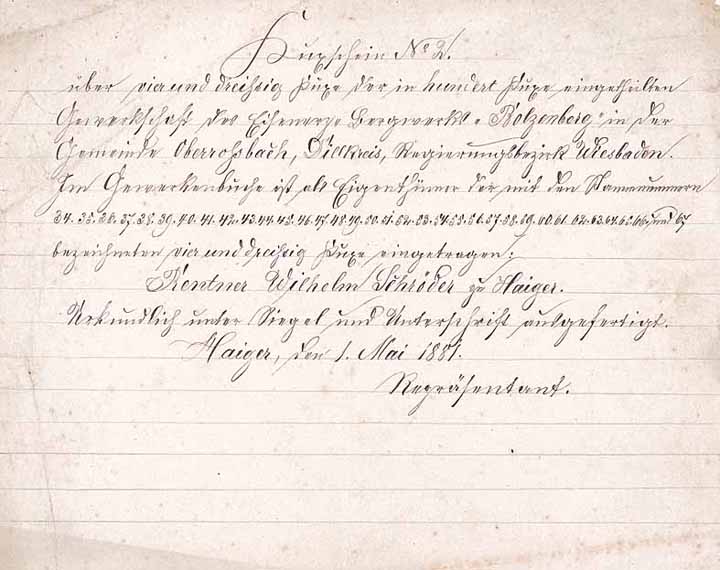 Kuxschein No 2.
über vier und dreißig Kuxe der in hundert Kuxe eingetheilten
Gewerkschaft des Eisenerze Bergwerks „Bolzenberg" in der
Gemeinde Oberroßbach, Dillkreis, Regierungsbezirk Wiesbaden.
Im Gewerkenbuche ist als Eigenthümer der mit den Stammnummern
34. 35. 36. 37. 38. 39. 40. 41. 42. 43. 44. 45. 46. 47. 48. 49. 50. 51. 52. 53. 54. 55. 56. 57. 58. 59. 60. 61. 62. 63. 64. 65. 66. und 67
bezeichneten vier und dreißig Kuxe eingetragen:
Rentner Wilhelm Schröder zu Haiger.
Urkundlich unter Siegel und Unterschrift ausgefertigt.
Haiger, den 1. Mai 1881.
Repräsentant.